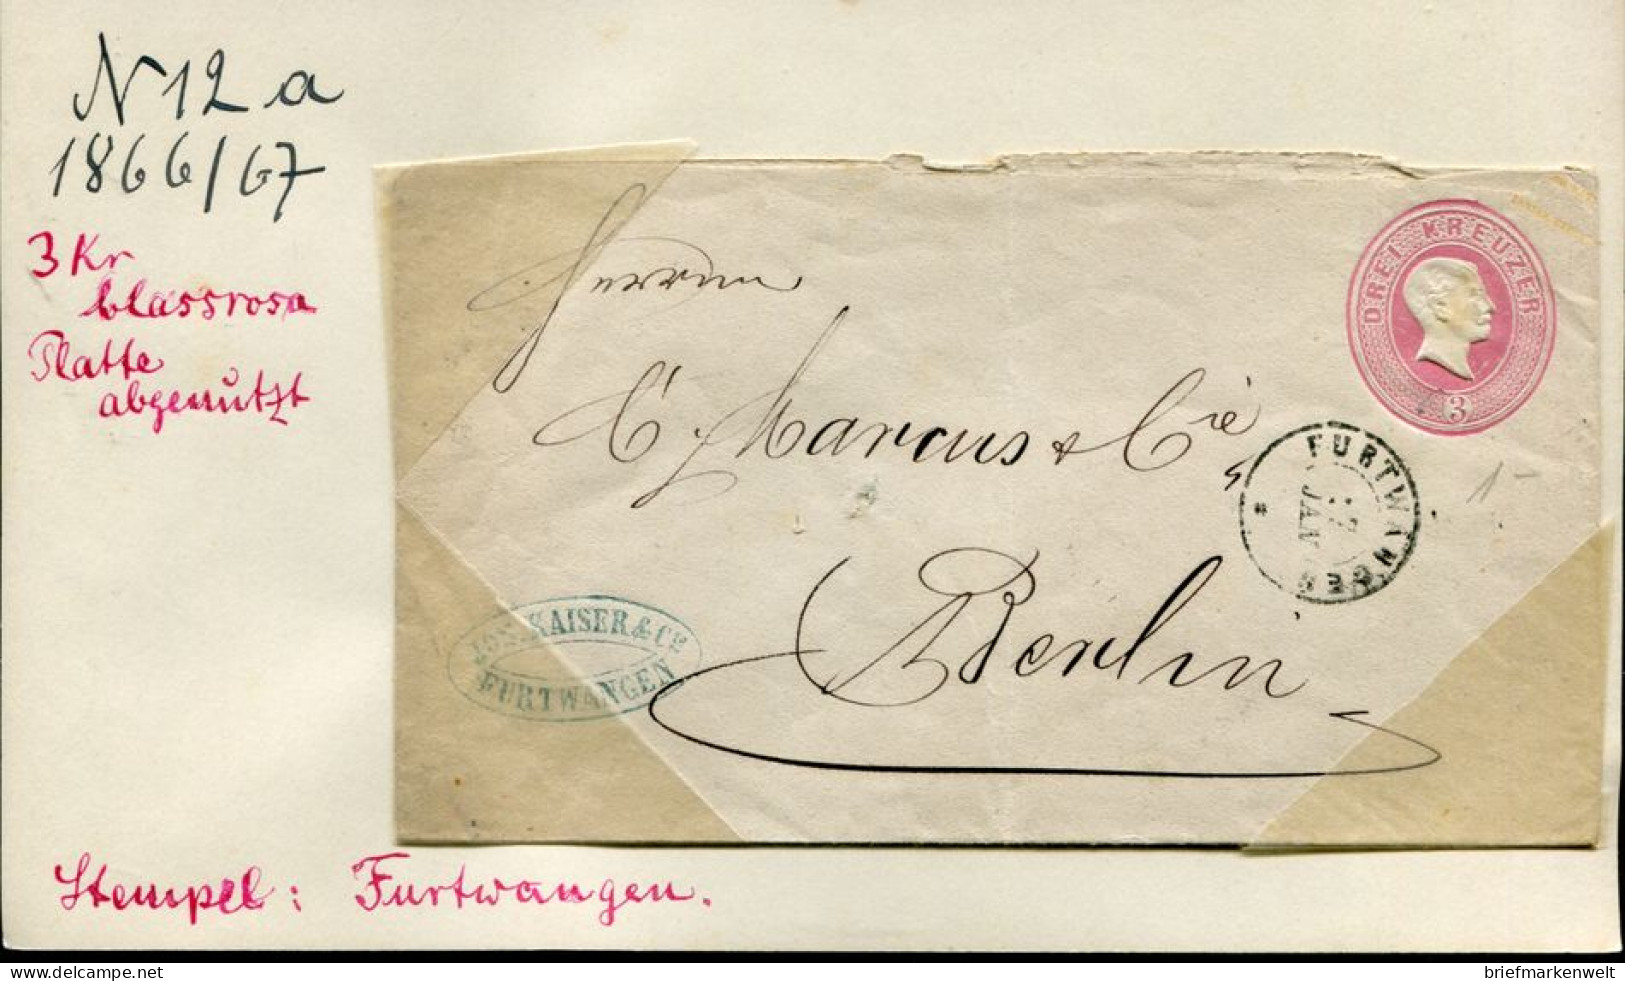 N 12 a
1866/67
3 Kr
blassrosa
Platte
abgenützt
DREI KREUZER
3
Herren
C. Marcus & Cie
Berlin
FURTWANGEN
JAN
KAISER & Cie
FURTWANGEN
1-
Stempel: Furtwangen.
briefmarkenwelt